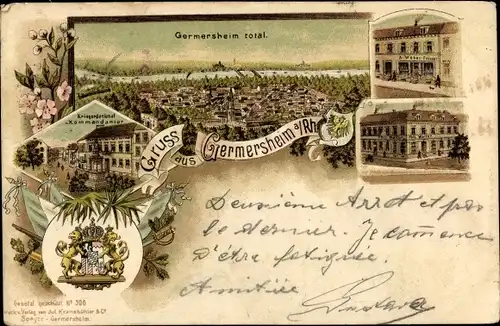 Germersheim total.
Kriegerdenkmal
u. Kommandantur
Gruss
aus
Germersheim a/Rh.
Deuxième Arret et pas
le dernier. Je commence
d'être fatiguée.
Amitiés
Gesetzl. geschützt No 306
Verlag von Jul. Kranzbühler & Co.
Speyer - Germersheim.